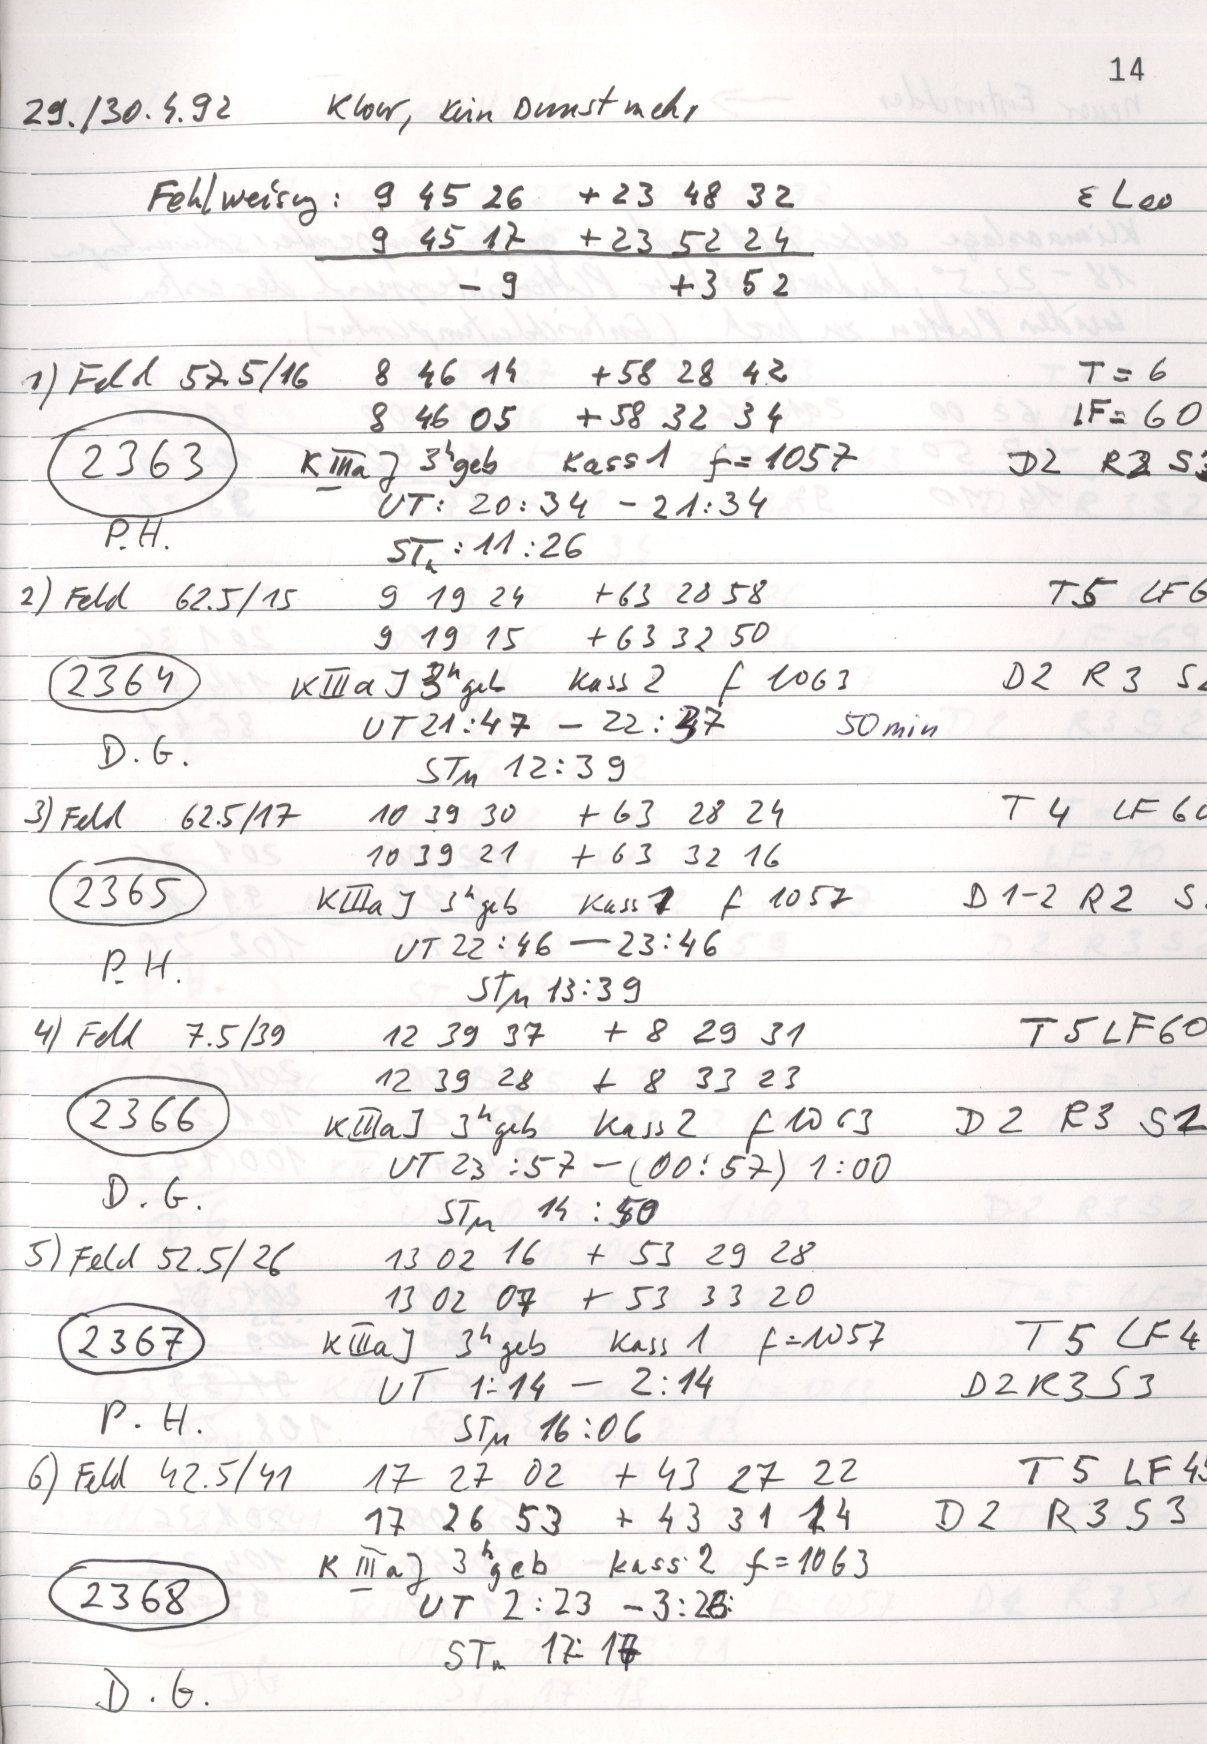 14
29./30.4.92 Klar, kein Dunst mehr
Fehlweisg: 9 45 26 +23 48 32 ε Leo
9 45 17 +23 52 24
- 9 +3 52
1) Feld 57.5/16 8 46 14 +58 28 42 T = 6
8 46 05 +58 32 34 LF = 60
2363 K IIIa J 3h geb Kass 1 f = 1057 D2 R2 S3
UT: 20:34 - 21:34
P.H.
STm : 11:26
2) Feld 62.5/15 9 19 24 +63 28 58 T5 LF6
9 19 15 +63 32 50
2364 KIIIa J 3h geb Kass 2 f 1063 D2 R3 S2
UT 21:47 - 22:37 50 min
D.G.
STm 12:39
3) Feld 62.5/17 10 39 30 +63 28 24 T 4 LF 60
10 39 21 +63 32 16
2365 KIIIa J 3h geb Kass 1 f 1057 D1-2 R2 S
UT 22:46 - 23:46
P.H.
STm 13:39
4) Feld 7.5/39 12 39 37 + 8 29 31 T 5 LF60
12 39 28 + 8 33 23
2366 KIIIa J 3h geb Kass 2 f 1063 D2 R3 S2
UT 23:57 - (00:57) 1:00
D.G.
STm 14:50
5) Feld 52.5/26 13 02 16 + 53 29 28
13 02 07 + 53 33 20
2367 KIIIa J 3h geb Kass 1 f = 1057 T 5 LF 4
UT 1:14 - 2:14 D2 R3 S3
P.H.
STm 16:06
6) Feld 42.5/41 17 27 02 +43 27 22 T 5 LF 45
17 26 53 +43 31 14 D2 R3 S3
K IIIa J 3h geb Kass 2 f = 1063
2368 UT 2:23 - 3:23
STm 17:17
D.G.